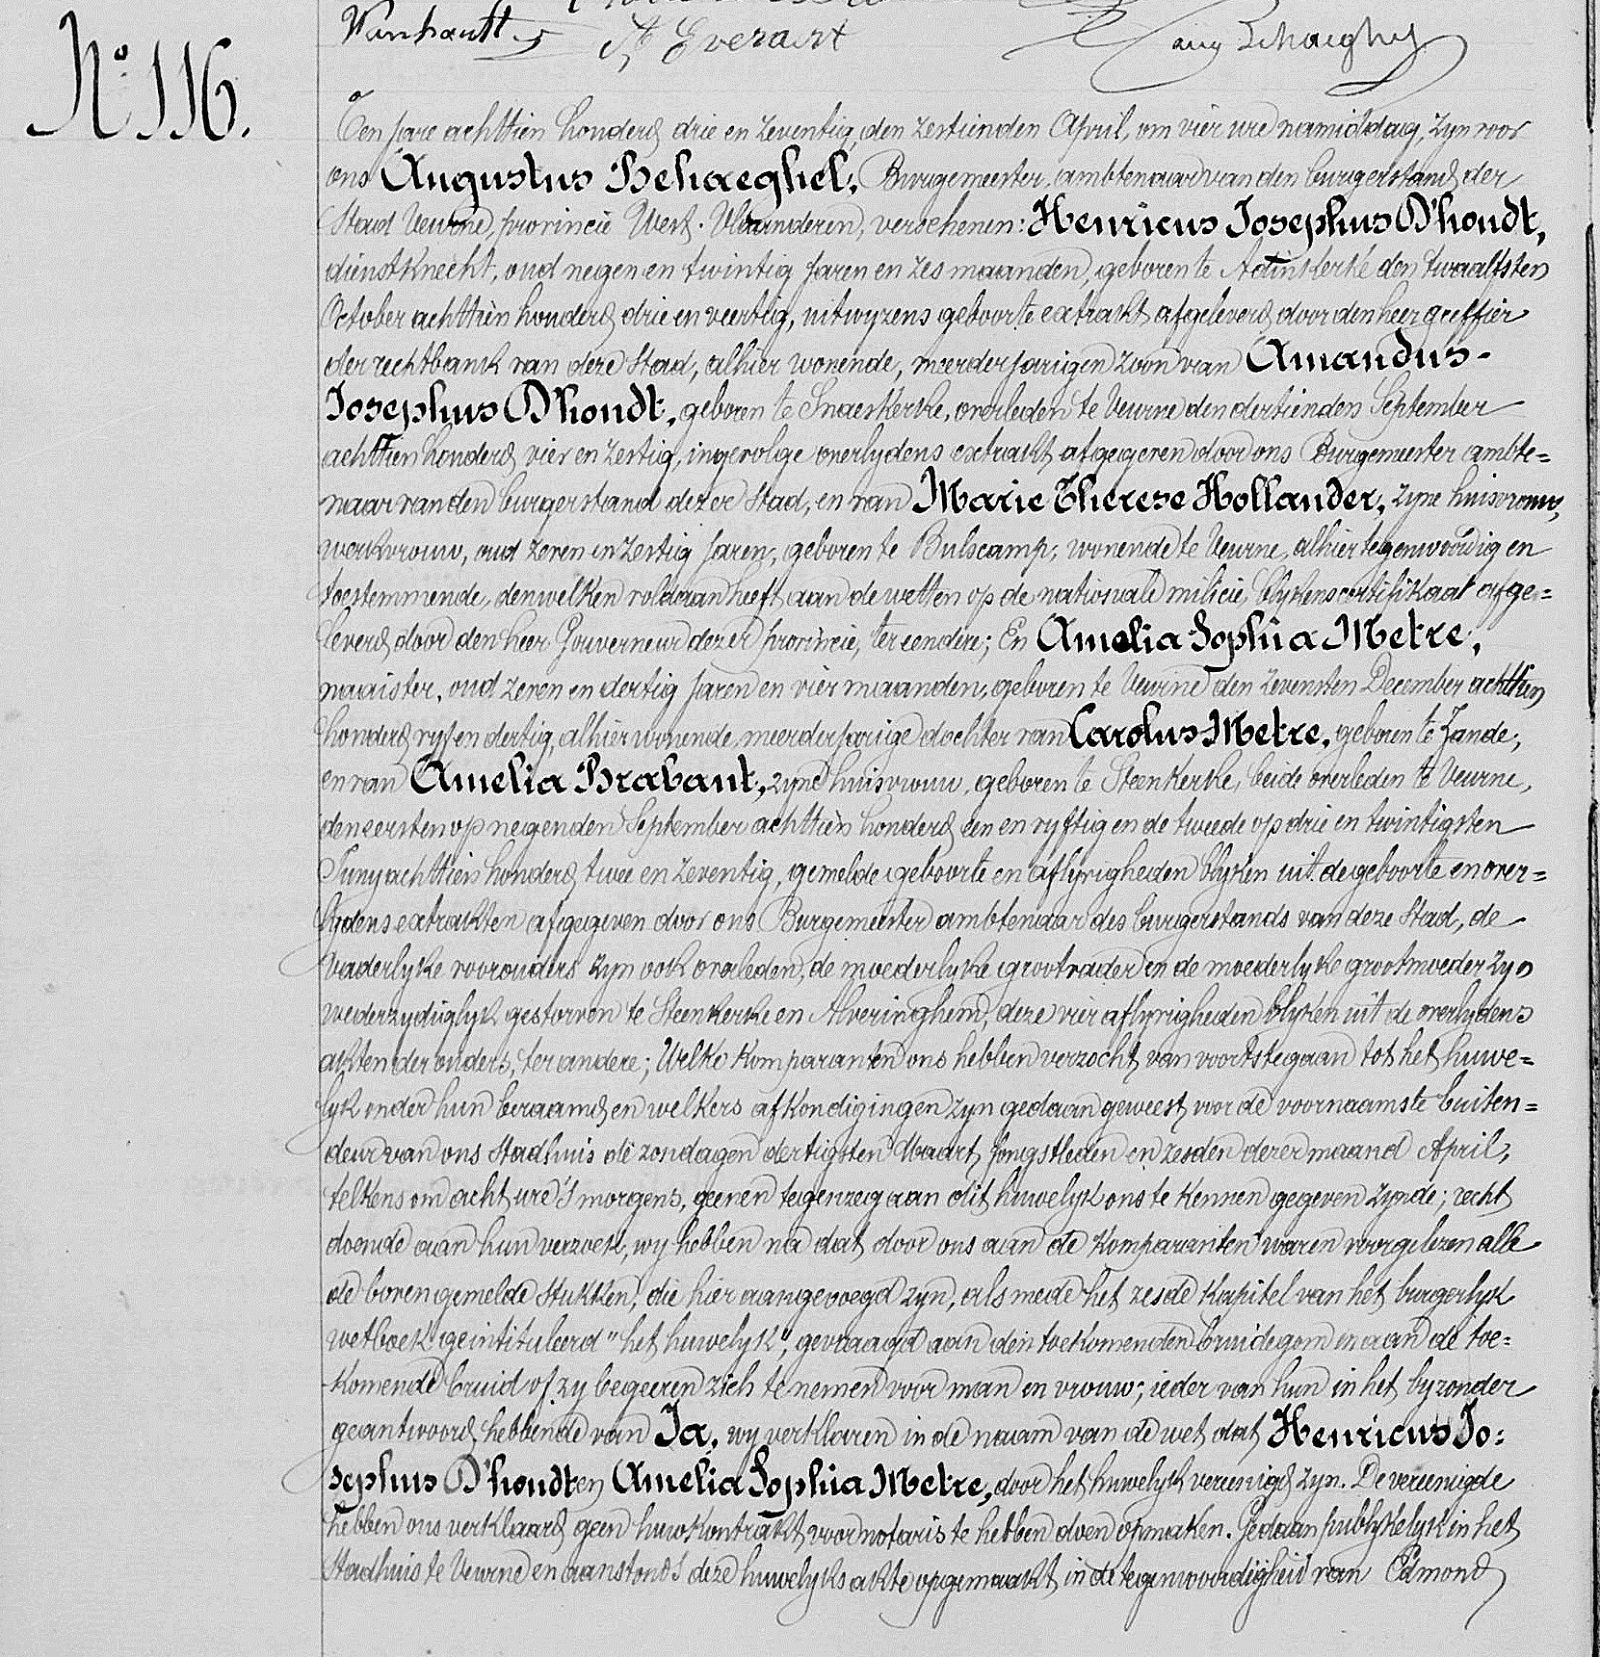 Vanhoutt A Everaert Aug Behaeghel
N° 116.
Ten jare achttien honderd drie en zeventig, den zestienden April, om vier ure namiddag, zyn voor
ons Augustus Behaeghel, Burgemeester, ambtenaar van den burgerstand der
Stad Veurne, provincie West-Vlaanderen, verschenen: Henricus Josephus D'hondt,
dienstknecht, oud negen en twintig jaren en zes maanden, geboren te Adinkerke den twaalfsten
October achttien honderd drie en veertig, uitwyzens geboorte extrakt afgeleverd door den heer greffier
der rechtbank van deze Stad, alhier wonende, meerderjarigen zoon van Amandus-
Josephus D'hondt, geboren te Snaeskerke, overleden te Veurne den dertienden September
achttien honderd vier en zestig, ingevolge overlydens extrakt afgegeven door ons Burgemeester ambte=
naar van den burgerstand dezer Stad, en van Marie Therese Hollander, zyne huisvrouw,
werkvrouw, oud zeven en zestig jaren, geboren te Bulscamp, wonende te Veurne, alhier tegenwoordig en
toestemmende, denwelken voldaan heeft aan de wetten op de nationale milicie, blykens certifikaat afge=
leverd door den heer Gouverneur dezer provincie, ter eendere; En Amelia Sophia Metre,
naaister, oud zeven en dertig jaren en vier maanden, geboren te Veurne den zevensten December achttien
honderd vyf en dertig, alhier wonende, meerderjarige dochter van Carolus Metre, geboren te Zande,
en van Amelia Brabant, zyne huisvrouw, geboren te Steenkerke, beide overleden te Veurne,
den eersten op negenden September achttien honderd een en vyftig en de tweede op drie en twintigsten
Juny achttien honderd twee en zeventig, gemelde geboorte en aflyvigheden blyken uit de geboorte en over=
lydens extrakten afgegeven door ons Burgemeester ambtenaar des burgerstands van deze Stad, de
vaderlyke voorouders zyn ook overleden, de moederlyke grootvader en de moederlyke grootmoeder zyn
wederzydiglyk gestorven te Steenkerke en Alveringhem, deze vier aflyvigheden blyken uit de overlydens
akten der ouders, ter andere; Welke Komparanten ons hebben verzocht van voorts te gaan tot het huwe=
lyk onder hun beraamd en welkers afkondigingen zyn gedaan geweest voor de voornaamste buiten=
deur van ons Stadhuis de zondagen dertigsten Maart jongstleden en zesden dezer maand April,
telkens om acht ure 's morgens, geenen tegenzeg aan dit huwelyk ons te kennen gegeven zynde; recht
doende aan hun verzoek, wy hebben na dat door ons aan de Komparanten waren voorgelezen alle
de boven gemelde stukken, die hier aangevoegd zyn, als mede het zesde kapitel van het burgerlyk
wetboek geintituleerd "het huwelyk", gevraagd aan den toekomenden bruidegom en aan de toe=
komende bruid of zy begeeren zich te nemen voor man en vrouw; ieder van hun in het byzonder
geantwoord hebbende van Ja, wy verklaren in de naam van de wet dat Henricus Jo=
sephus D'hondt en Amelia Sophia Metre, door het huwelyk vereenigd zyn. De vereenigde
hebben ons verklaard geen huwkontrakt voor notaris te hebben doen opmaken. Gedaan publykelyk in het
Stadhuis te Veurne en aanstonds deze huwelyks akte opgemaakt, in de tegenwoordigheid van Edmond